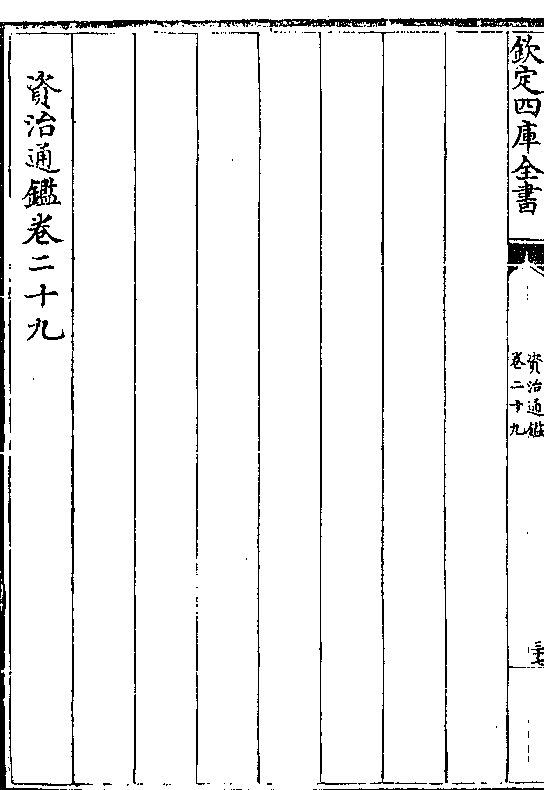 欽定四庫全書
資治通鑑
卷二十九
資治通鑑卷二十九